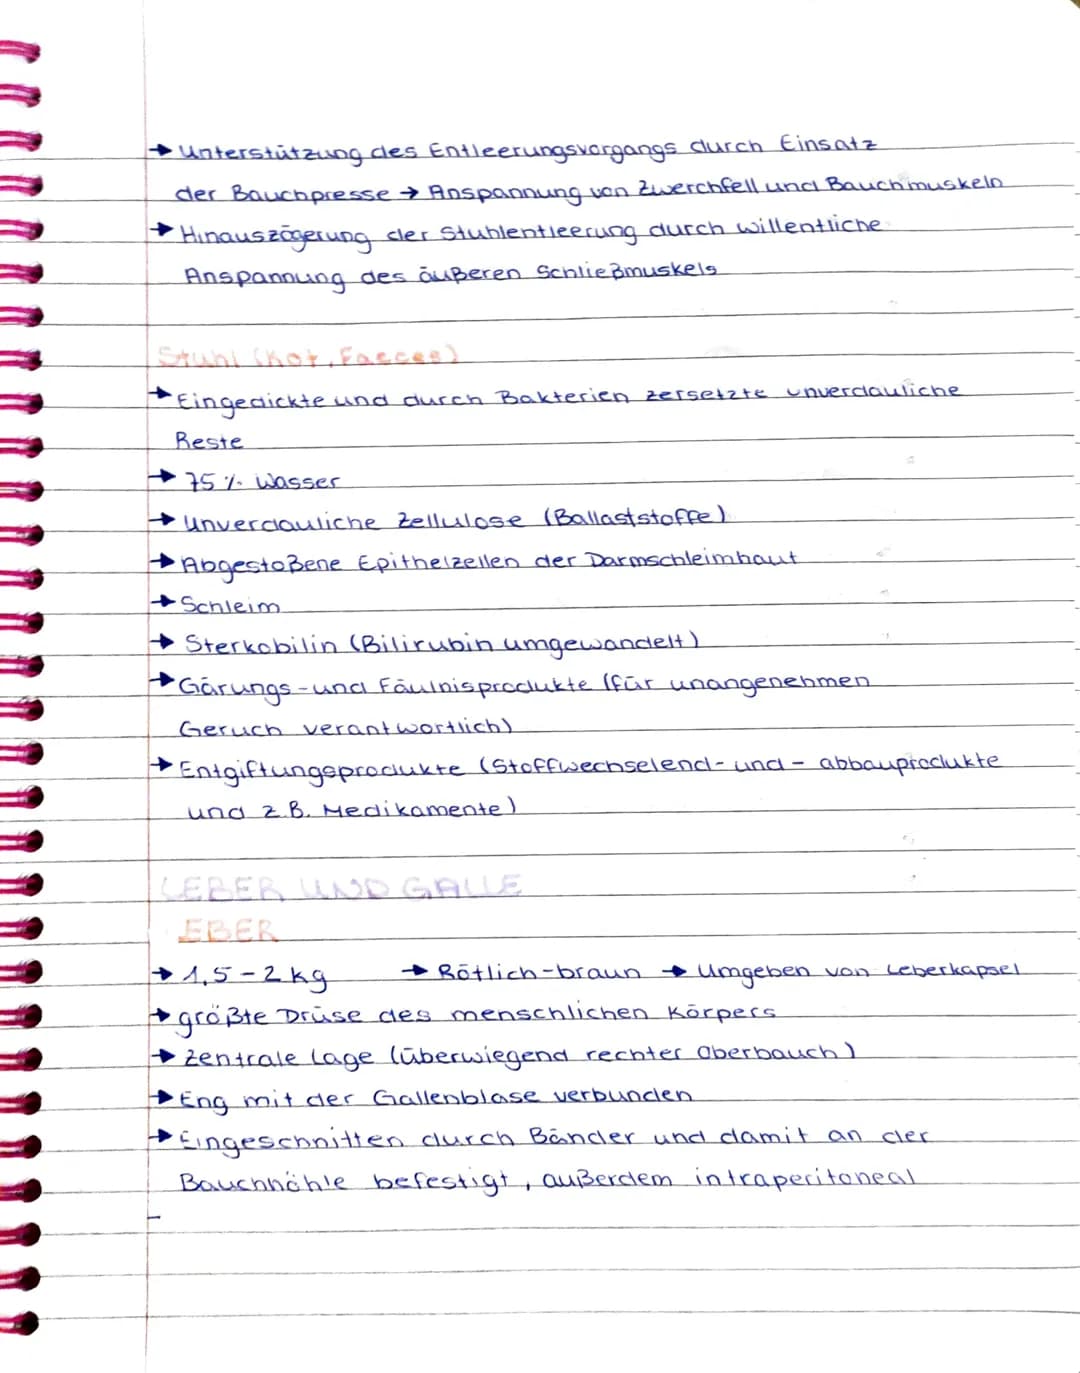 → Unterstützung des Entleerungsvorgangs durch Einsatz
der Bauchpresse → Anspannung von Zwerchfell und Bauchmuskeln
→ Hinauszögerung der Stuhlentleerung durch willentliche
Anspannung des äußeren Schließmuskels
Stuhl (Kot, Faeces)
→ Eingedickte und durch Bakterien zersetzte unverdauliche
Reste
→ 75 % Wasser
→ Unverdauliche Zellulose (Ballaststoffe)
→ Abgestoßene Epithelzellen der Darmschleimhaut
→ Schleim
→ Sterkobilin (Bilirubin umgewandelt)
→ Gärungs- und Fäulnisprodukte (für unangenehmen
Geruch verantwortlich)
→ Entgiftungsprodukte (Stoffwechselend- und -abbauprodukte
und z.B. Medikamente)
LEBER UND GALLE
EBER
→ 1,5-2 kg → Rötlich-braun → Umgeben von Leberkapsel
→ größte Drüse des menschlichen Körpers
→ Zentrale Lage (überwiegend rechter Oberbauch)
→ Eng mit der Gallenblase verbunden
→ Eingeschnitten durch Bänder und damit an der
Bauchhöhle befestigt, außerdem intraperitoneal